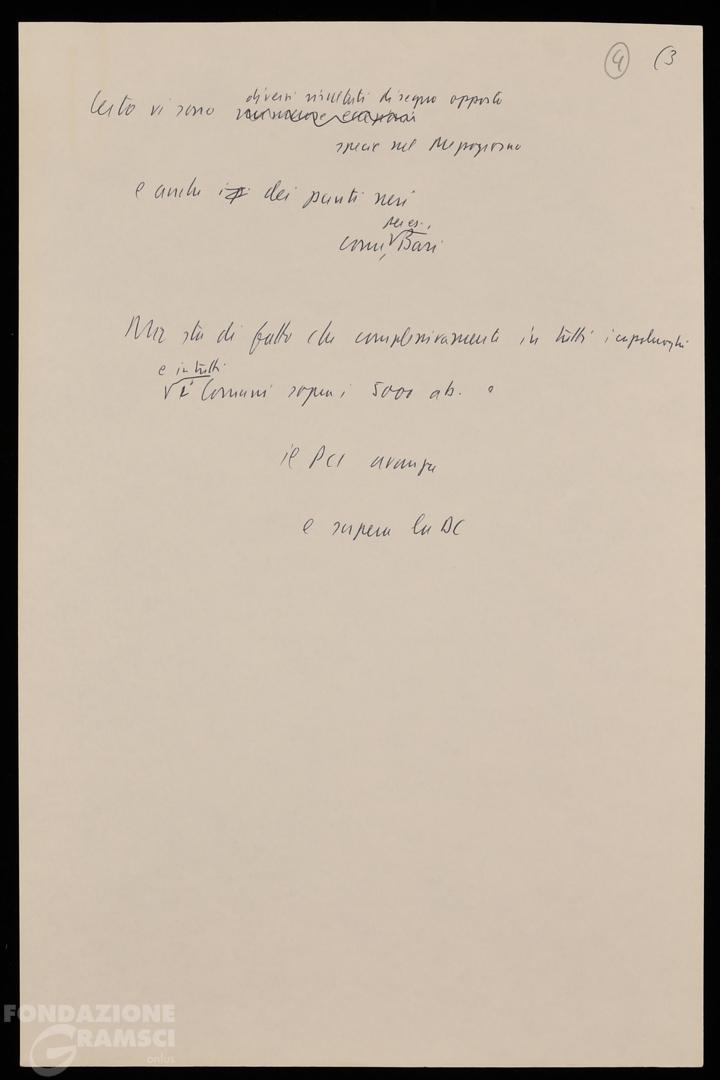 4 (3
diversi risultati di segno opposto
Certo vi sono
specie nel Mezzogiorno
e anche dei punti neri
per es.,
come, Bari
Ma sta di fatto che complessivamente in tutti i capoluoghi
e in tutti
i Comuni sopra i 5000 ab.
il PCI avanza
e supera la DC
FONDAZIONE
GRAMSCI
onlus